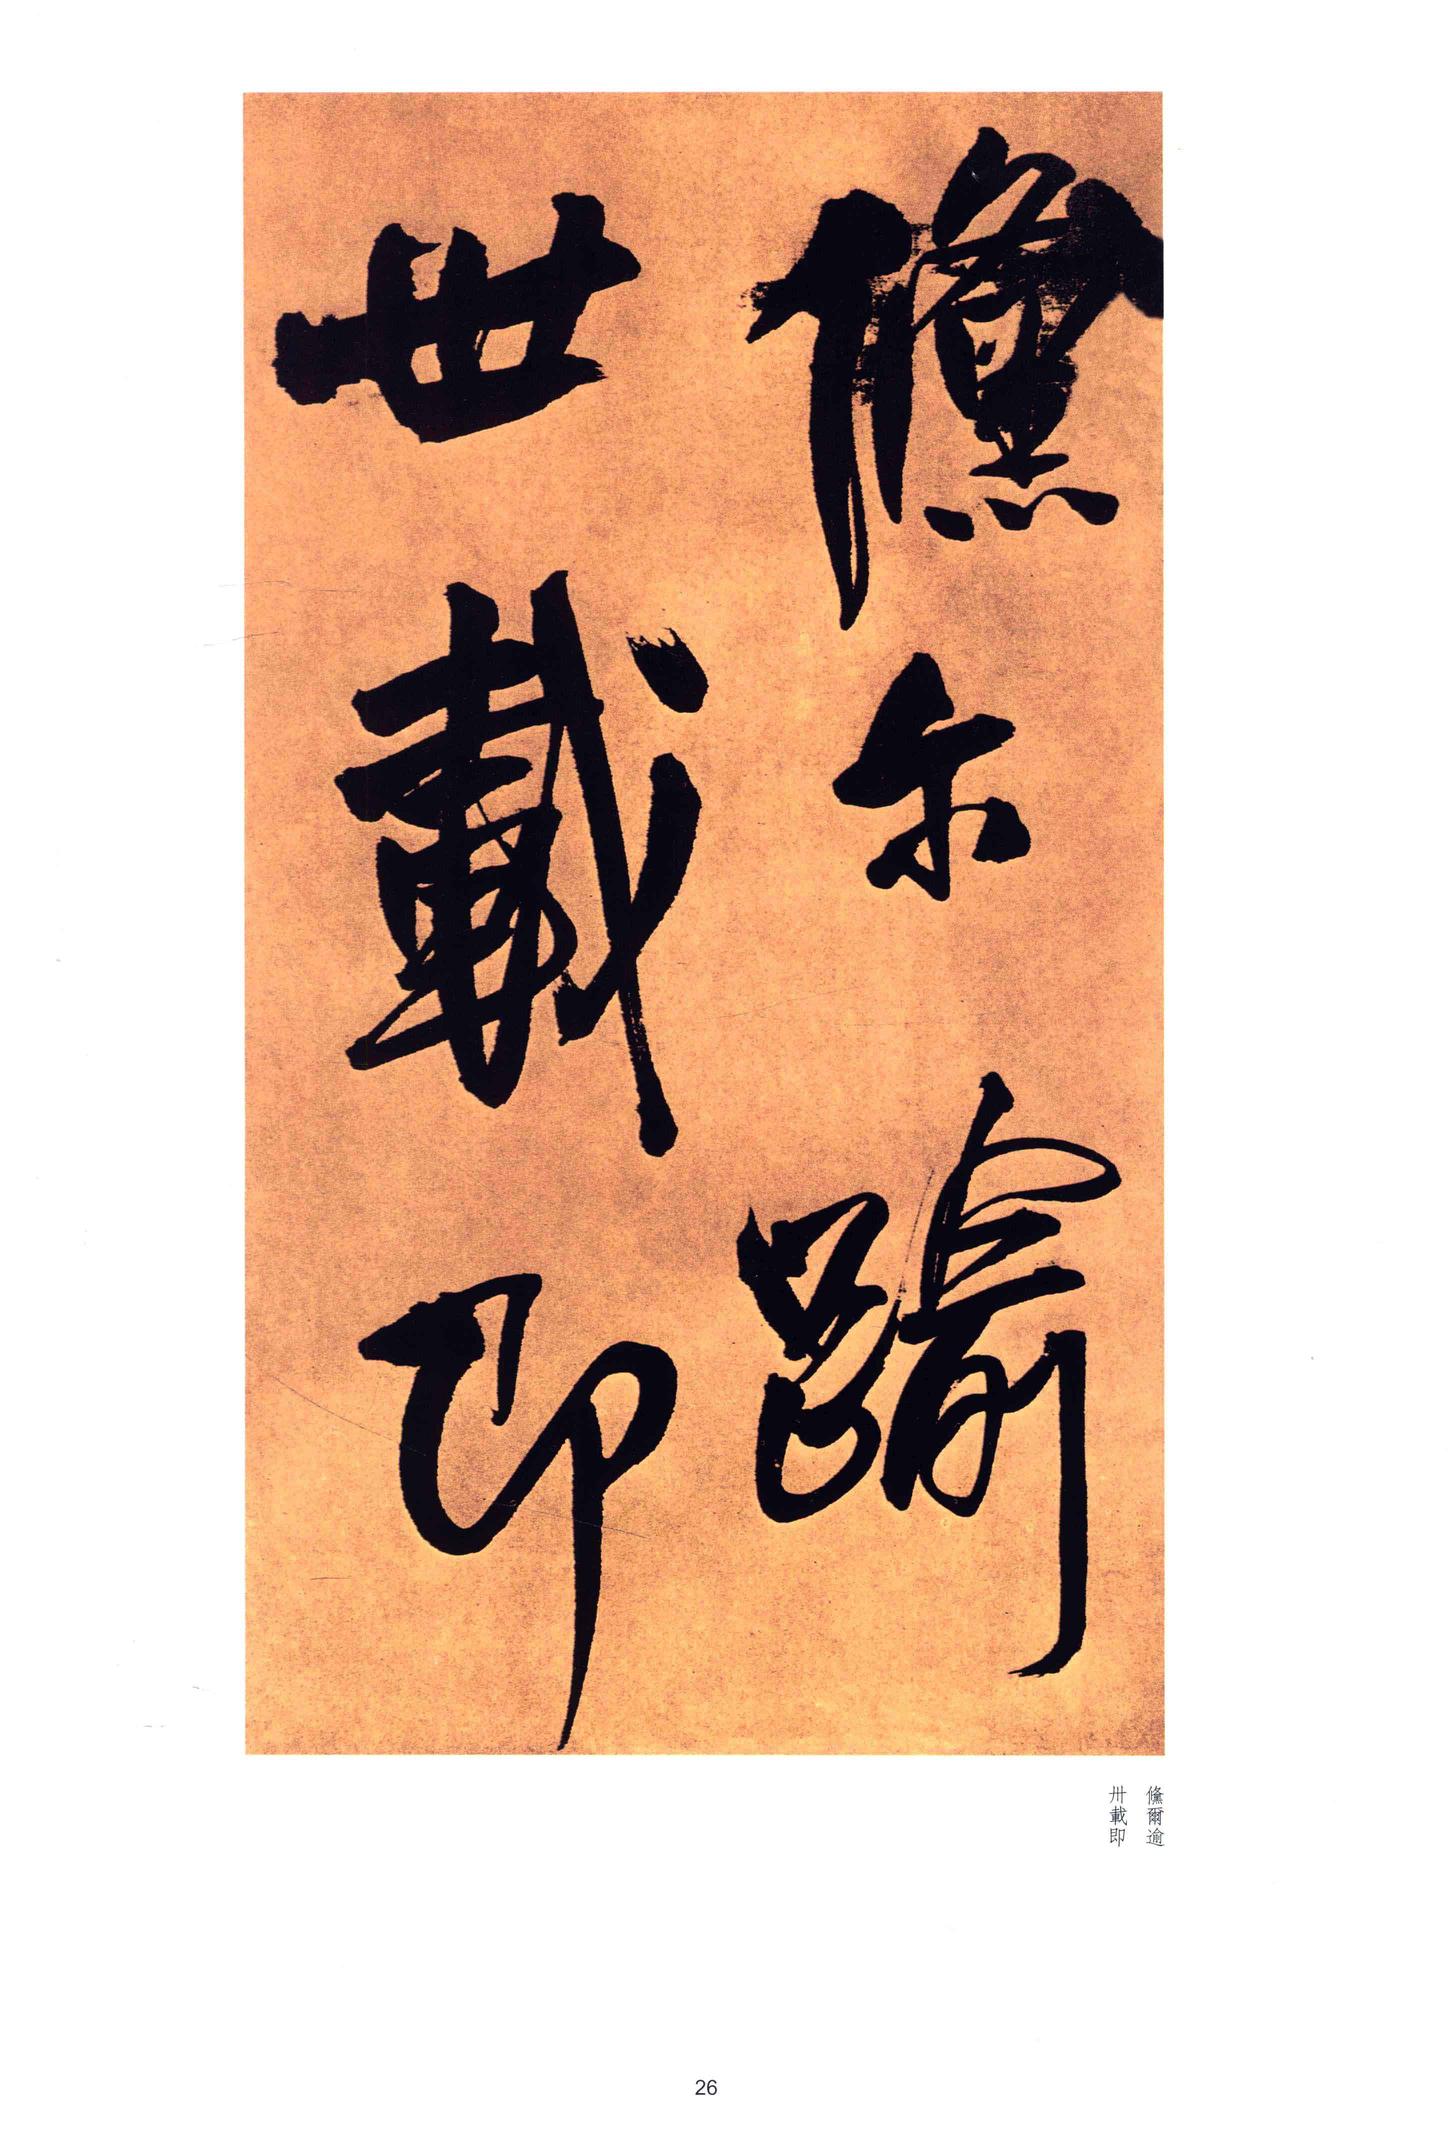 儵尔踰
卅載即
儵爾逾
卅載即
26